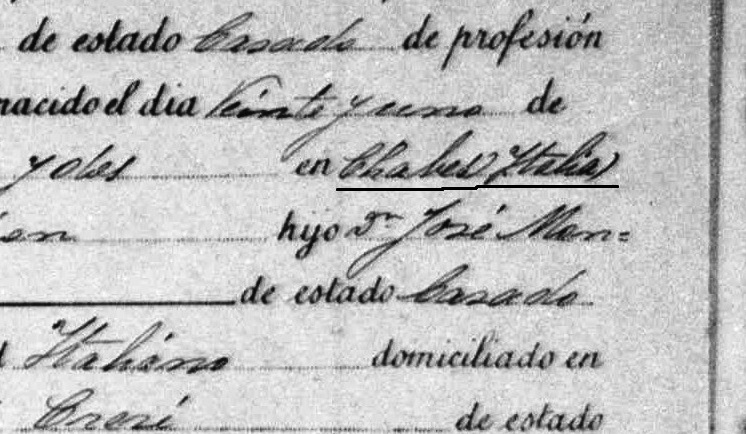 de estado Casado de profesión
nacido el dia Veinte y uno de
y dos en Chabes, Italia
en hijo Dn José Man=
de estado Casado
Italiano domiciliado en
de estado